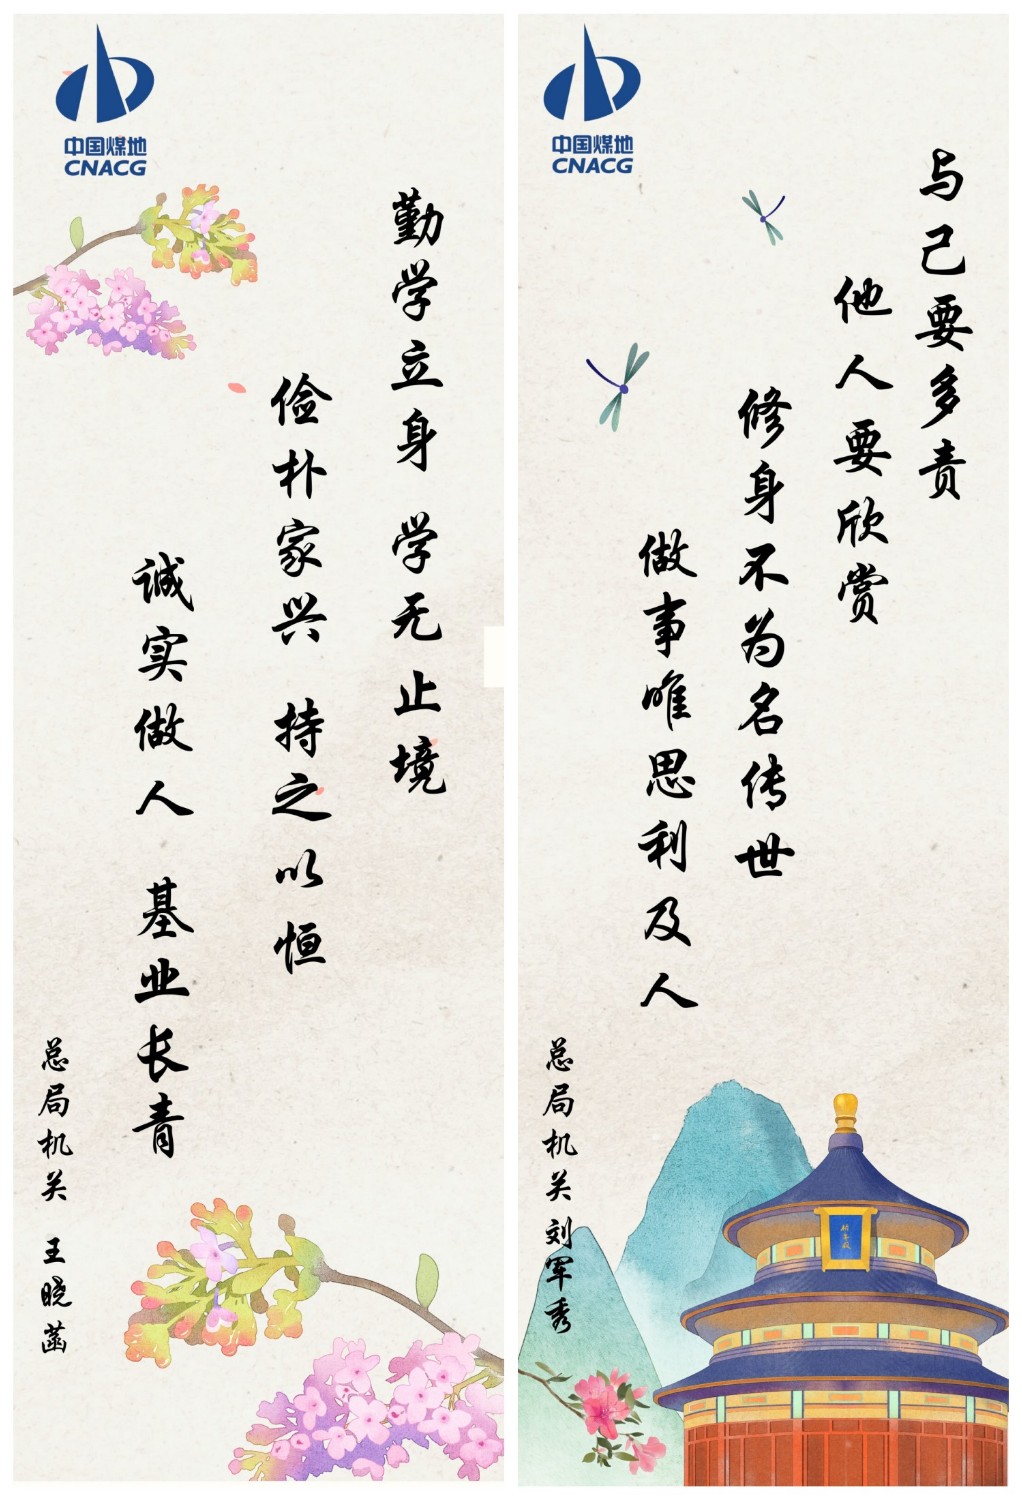 中国煤地
CNACG
勤学立身 学无止境
俭朴家兴 持之以恒
诚实做人 基业长青
总局机关 王晓菡
中国煤地
CNACG
与己要多责
他人要欣赏
修身不为名传世
做事唯思利及人
总局机关 刘军秀